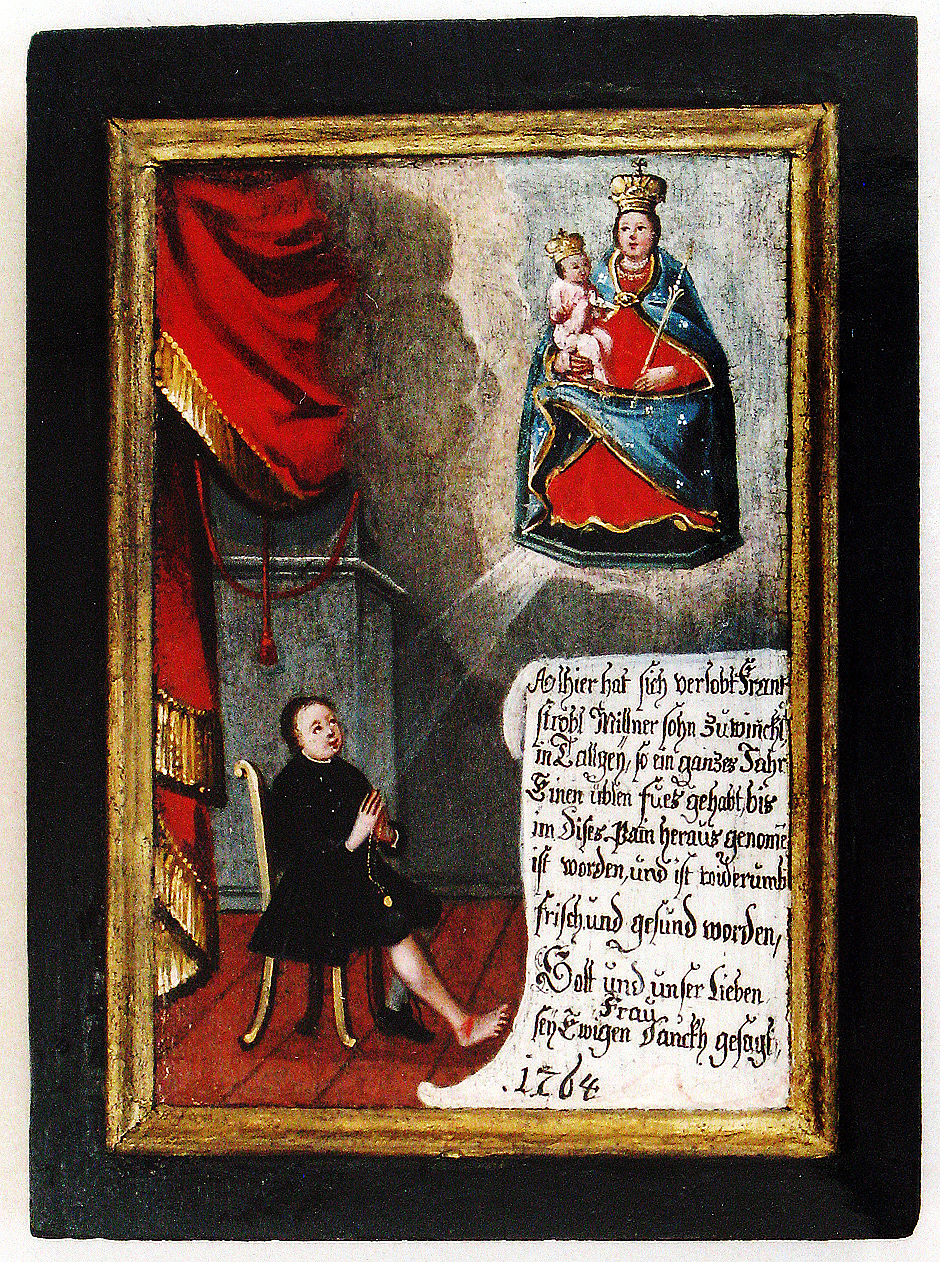 Alhier hat sich verlobt Frantz
strobl Millner sohn zu winckl,
in Tallgey, so ein ganzes Jahr
Einen üblen fues gehabt, bis
im dises Pain heraus genome
ist worden, und ist widerumb
frisch und gesund worden,
Gott und unser Lieben
Frau
sey Ewigen danckh gesagt,
1764